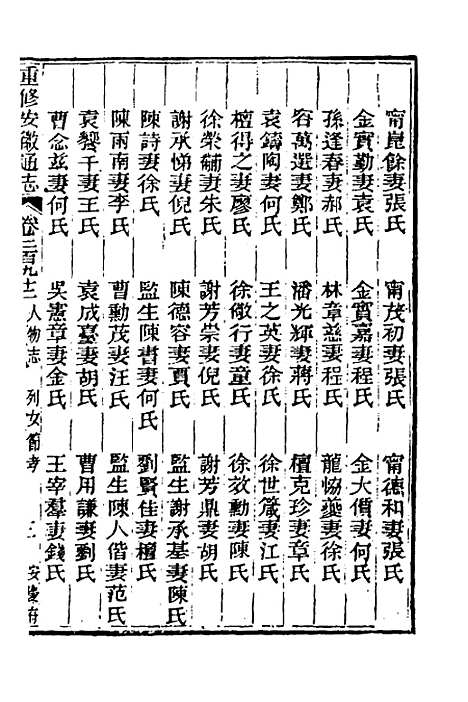 甯崑餘妻張氏　甯茂初妻張氏　甯德和妻張氏
金實勤妻袁氏　金實嘉妻程氏　金大儥妻何氏
孫逢春妻郝氏　林章慈妻程氏　龍協夔妻徐氏
容萬選妻鄭氏　潘光輝妻蔣氏　檀克珍妻章氏
袁鑄陶妻何氏　王之英妻徐氏　徐世箴妻江氏
檀得之妻廖氏　徐敬行妻童氏　徐效勳妻陳氏
徐榮黼妻朱氏　謝芳崇妻倪氏　謝芳鼎妻胡氏
謝承悌妻倪氏　陳德容妻賈氏　監生謝承基妻陳氏
陳詩妻徐氏　監生陳書妻何氏　劉賢佳妻檀氏
陳雨南妻李氏　曹勳茂妻汪氏　監生陳人偕妻范氏
袁饗千妻王氏　袁成臺妻胡氏　曹用謙妻劉氏
曹念茲妻何氏　吳憲章妻金氏　王宰羣妻錢氏
重修安徽通志　卷二百九十二　人物志　列女節孝　三　安慶府